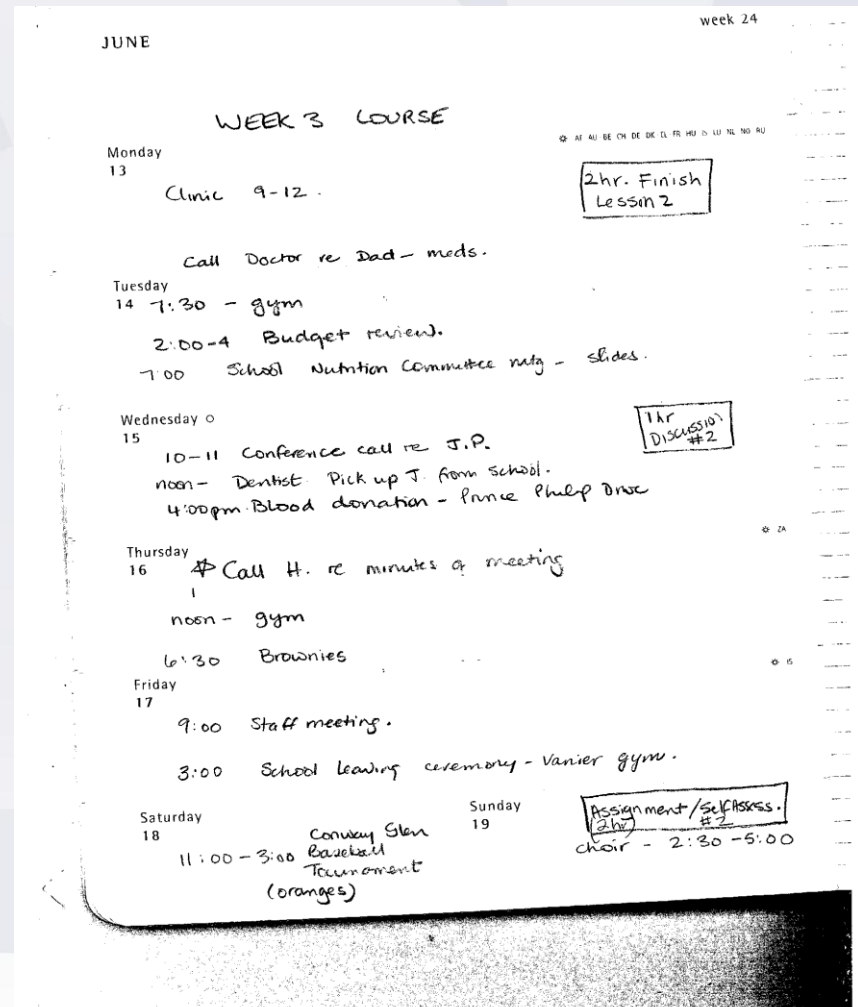 week 24
JUNE
WEEK 3 COURSE
AF AU BE CH DE DK EL FR HU IS LU NL NO RU
Monday
13
Clinic 9-12.
2hr. Finish
Lesson 2
Call Doctor re Dad - meds.
Tuesday
14 7:30 - gym
2:00-4 Budget review.
7:00 School Nutrition Committee mtg - slides.
Wednesday
15
1hr
Discussion
#2
10-11 Conference call re J.P.
noon - Dentist. Pick up J. from school.
4:00pm. Blood donation - Prince Philip Drive
ZA
Thursday
16 Call H. re minutes of meeting
noon - gym
6:30 Brownies
IS
Friday
17
9:00 Staff meeting.
3:00 School leaving ceremony - Vanier gym.
Saturday
18
Conway Glen
11:00 - 3:00 Baseball
Tournament
(oranges)
Sunday
19
Assignment/Self Assess.
(2hr) #2
choir - 2:30 - 5:00